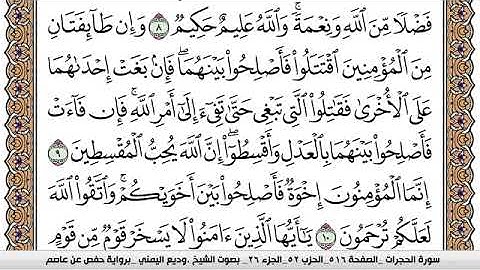 فَضْلًا مِّنَ ٱللَّهِ وَنِعْمَةً ۚ وَٱللَّهُ عَلِيمٌ حَكِيمٌ ٨ وَإِن طَآئِفَتَانِ
مِنَ ٱلْمُؤْمِنِينَ ٱقْتَتَلُوا۟ فَأَصْلِحُوا۟ بَيْنَهُمَا ۖ فَإِنۢ بَغَتْ إِحْدَىٰهُمَا
عَلَى ٱلْأُخْرَىٰ فَقَـٰتِلُوا۟ ٱلَّتِى تَبْغِى حَتَّىٰ تَفِىٓءَ إِلَىٰٓ أَمْرِ ٱللَّهِ ۚ فَإِن فَآءَتْ
فَأَصْلِحُوا۟ بَيْنَهُمَا بِٱلْعَدْلِ وَأَقْسِطُوٓا۟ ۖ إِنَّ ٱللَّهَ يُحِبُّ ٱلْمُقْسِطِينَ ٩
إِنَّمَا ٱلْمُؤْمِنُونَ إِخْوَةٌ فَأَصْلِحُوا۟ بَيْنَ أَخَوَيْكُمْ ۚ وَٱتَّقُوا۟ ٱللَّهَ
لَعَلَّكُمْ تُرْحَمُونَ ١٠ يَـٰٓأَيُّهَا ٱلَّذِينَ ءَامَنُوا۟ لَا يَسْخَرْ قَوْمٌ مِّن قَوْمٍ
سورة الحجرات _الصفحة ٥١٦_الحزب ٥٢_الجزء ٢٦_ بصوت الشيخ .وديع اليمني _برواية حفص عن عاصم